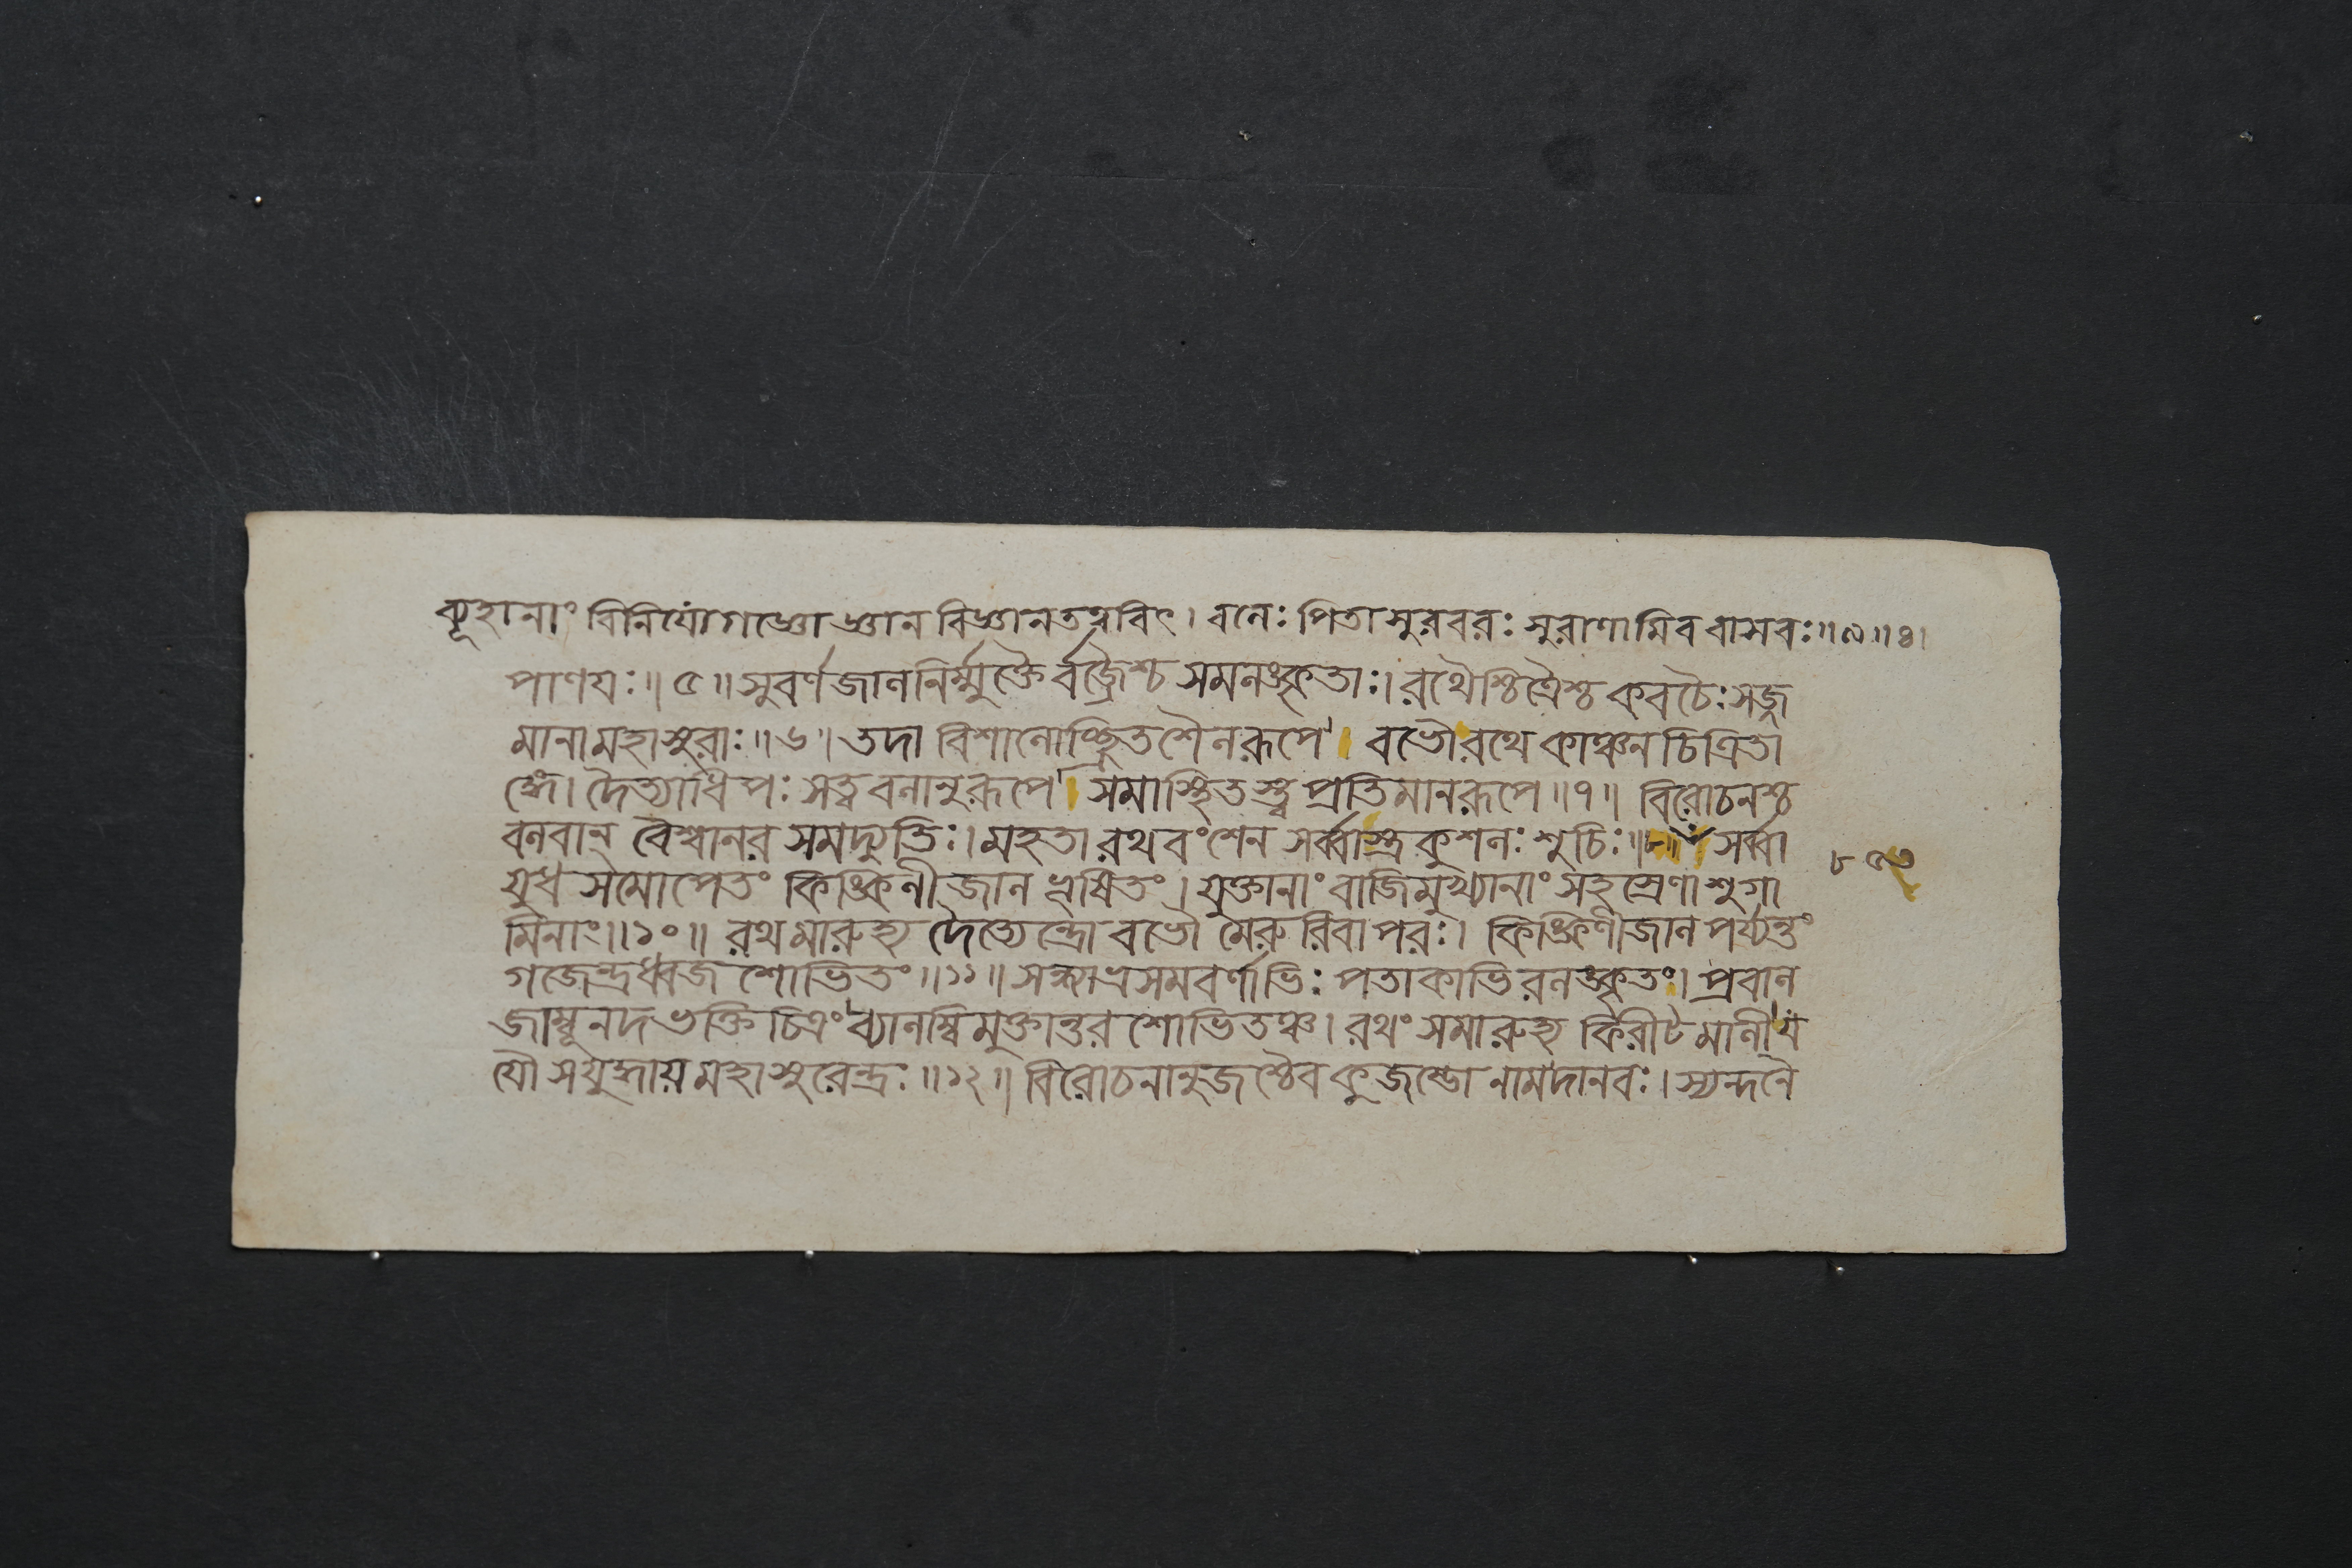 ব্যূহানাং বিনিযোগজ্ঞো জ্ঞান বিজ্ঞানতত্ত্ববিৎ। বলেঃ পিতা সুরবরঃ সুরাণামিব বাসবঃ॥৯॥৪।
পাণযঃ॥৫॥সুবর্ণজালনির্ম্মুক্তৈর্বজ্রৈশ্চ সমলঙ্কৃতাঃ। রথৈশ্চিত্রৈশ্চ কবচৈঃ সজ্জ
মানামহাসুরাঃ॥৬॥তদা বিশালোচ্ছ্রিতশৈলরূপে। বভৌ রথে কাঞ্চন চিত্রিতা
ঙ্গে। দৈত্যাধিপঃ সত্ত্ববলানুরূপে। সমাস্থিতস্ত্বপ্রতিমানরূপে॥৭॥ বিরোচনশ্চ
বলবান্ বৈশ্বানর সমদ্যুতিঃ। মহতা রথ বংশেন সর্ব্বাস্ত্রকুশলঃ শুচিঃ॥৮॥ সর্ব্বা
যুধ সমোপেতং কিঙ্কিণী জাল ভূষিতং। যুক্তানাং বাজিমুখ্যানাং সহস্রেণাশুগা
মিনাং॥১০॥ রথমারুহ্য দৈত্যেন্দ্রো বভৌ মেরু রিবাপরঃ। কিঙ্কিণীজাল পর্য্যন্তং
গজেন্দ্রধ্বজ শোভিতং॥১১॥ সন্ধ্যাভ্রসমবর্ণাভিঃ পতাকাভিরলঙ্কৃতং। প্রবাল
জাম্বূনদ ভক্তি চিত্রং ব্যালম্বিমুক্তান্তর শোভিতঞ্চ। রথং সমারুহ্য কিরীটমালী য
যৌ স যুদ্ধায় মহাসুরেন্দ্রঃ॥১২॥ বিরোচনানুজশ্চৈব কুজম্ভো নামদানবঃ। স্যন্দনৈ